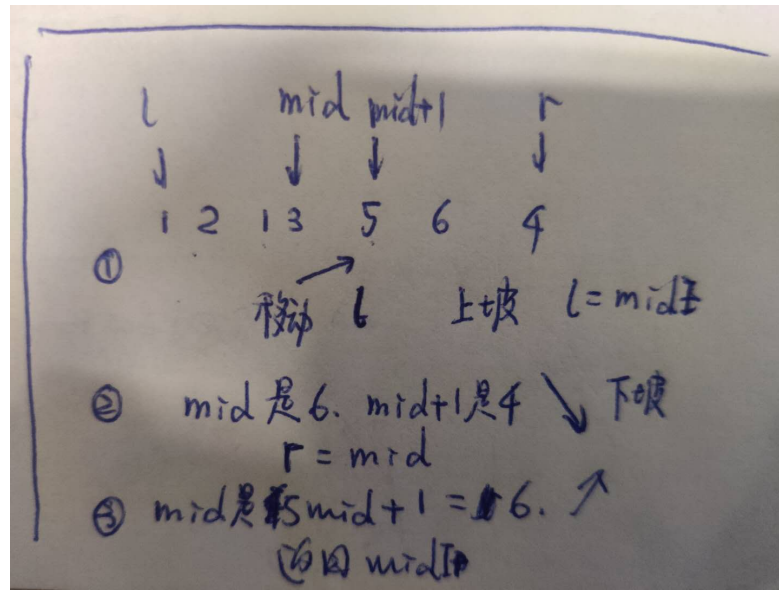 l mid mid+1 r
↓ ↓ ↓ ↓
1 2 1 3 5 6 4
①
移动 l 上坡 l=mid+1
② mid是6、mid+1是4 ↘ 下坡
r=mid
③ mid是5mid+1=6. ↗
返回mid+1